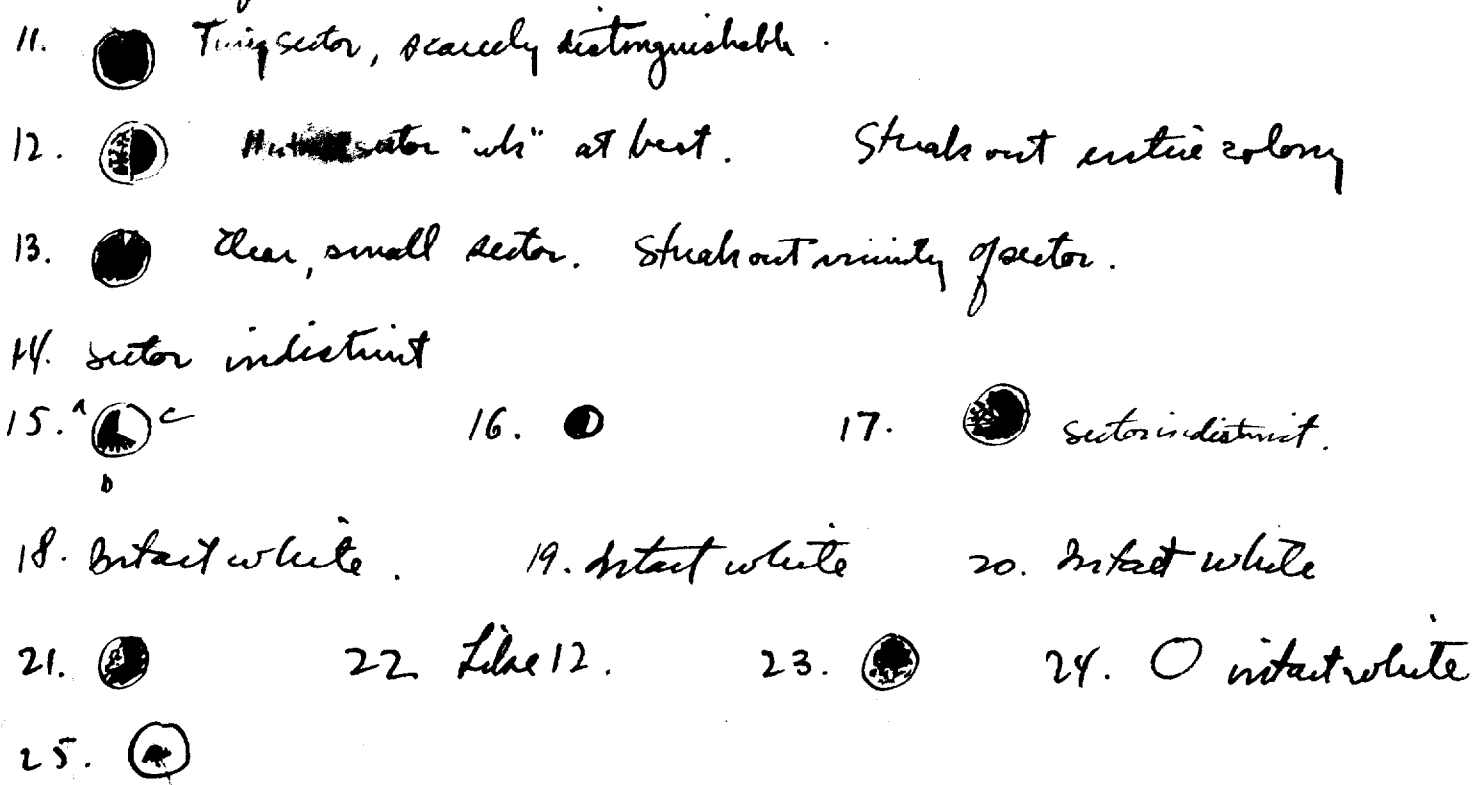 11. Tiny sector, scarcely distinguishable.
12. sector "wh" at best. Streak out entire colony
13. Clear, small sector. Streak out vicinity of sector.
14. Sector indistinct
15. A C 16. 17. Sector indistinct.
18. Intact white. 19. Intact white 20. Intact white
21. 22 Like 12. 23. 24. intact white
25.